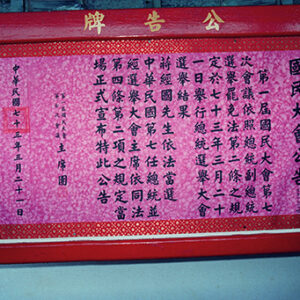 公告牌
國民大會公告
第一屆國民大會第七
次會議依照總統副總統
選舉罷免法第二條之規
定於七十三年三月二十
一日舉行總統選舉大會
選舉結果
蔣經國先生依法當選
中華民國第七任總統並
經選舉大會主席依同法
第四條第二項之規定當
場正式宣布特此公告
主席團
中華民國七十三年三月二十一日